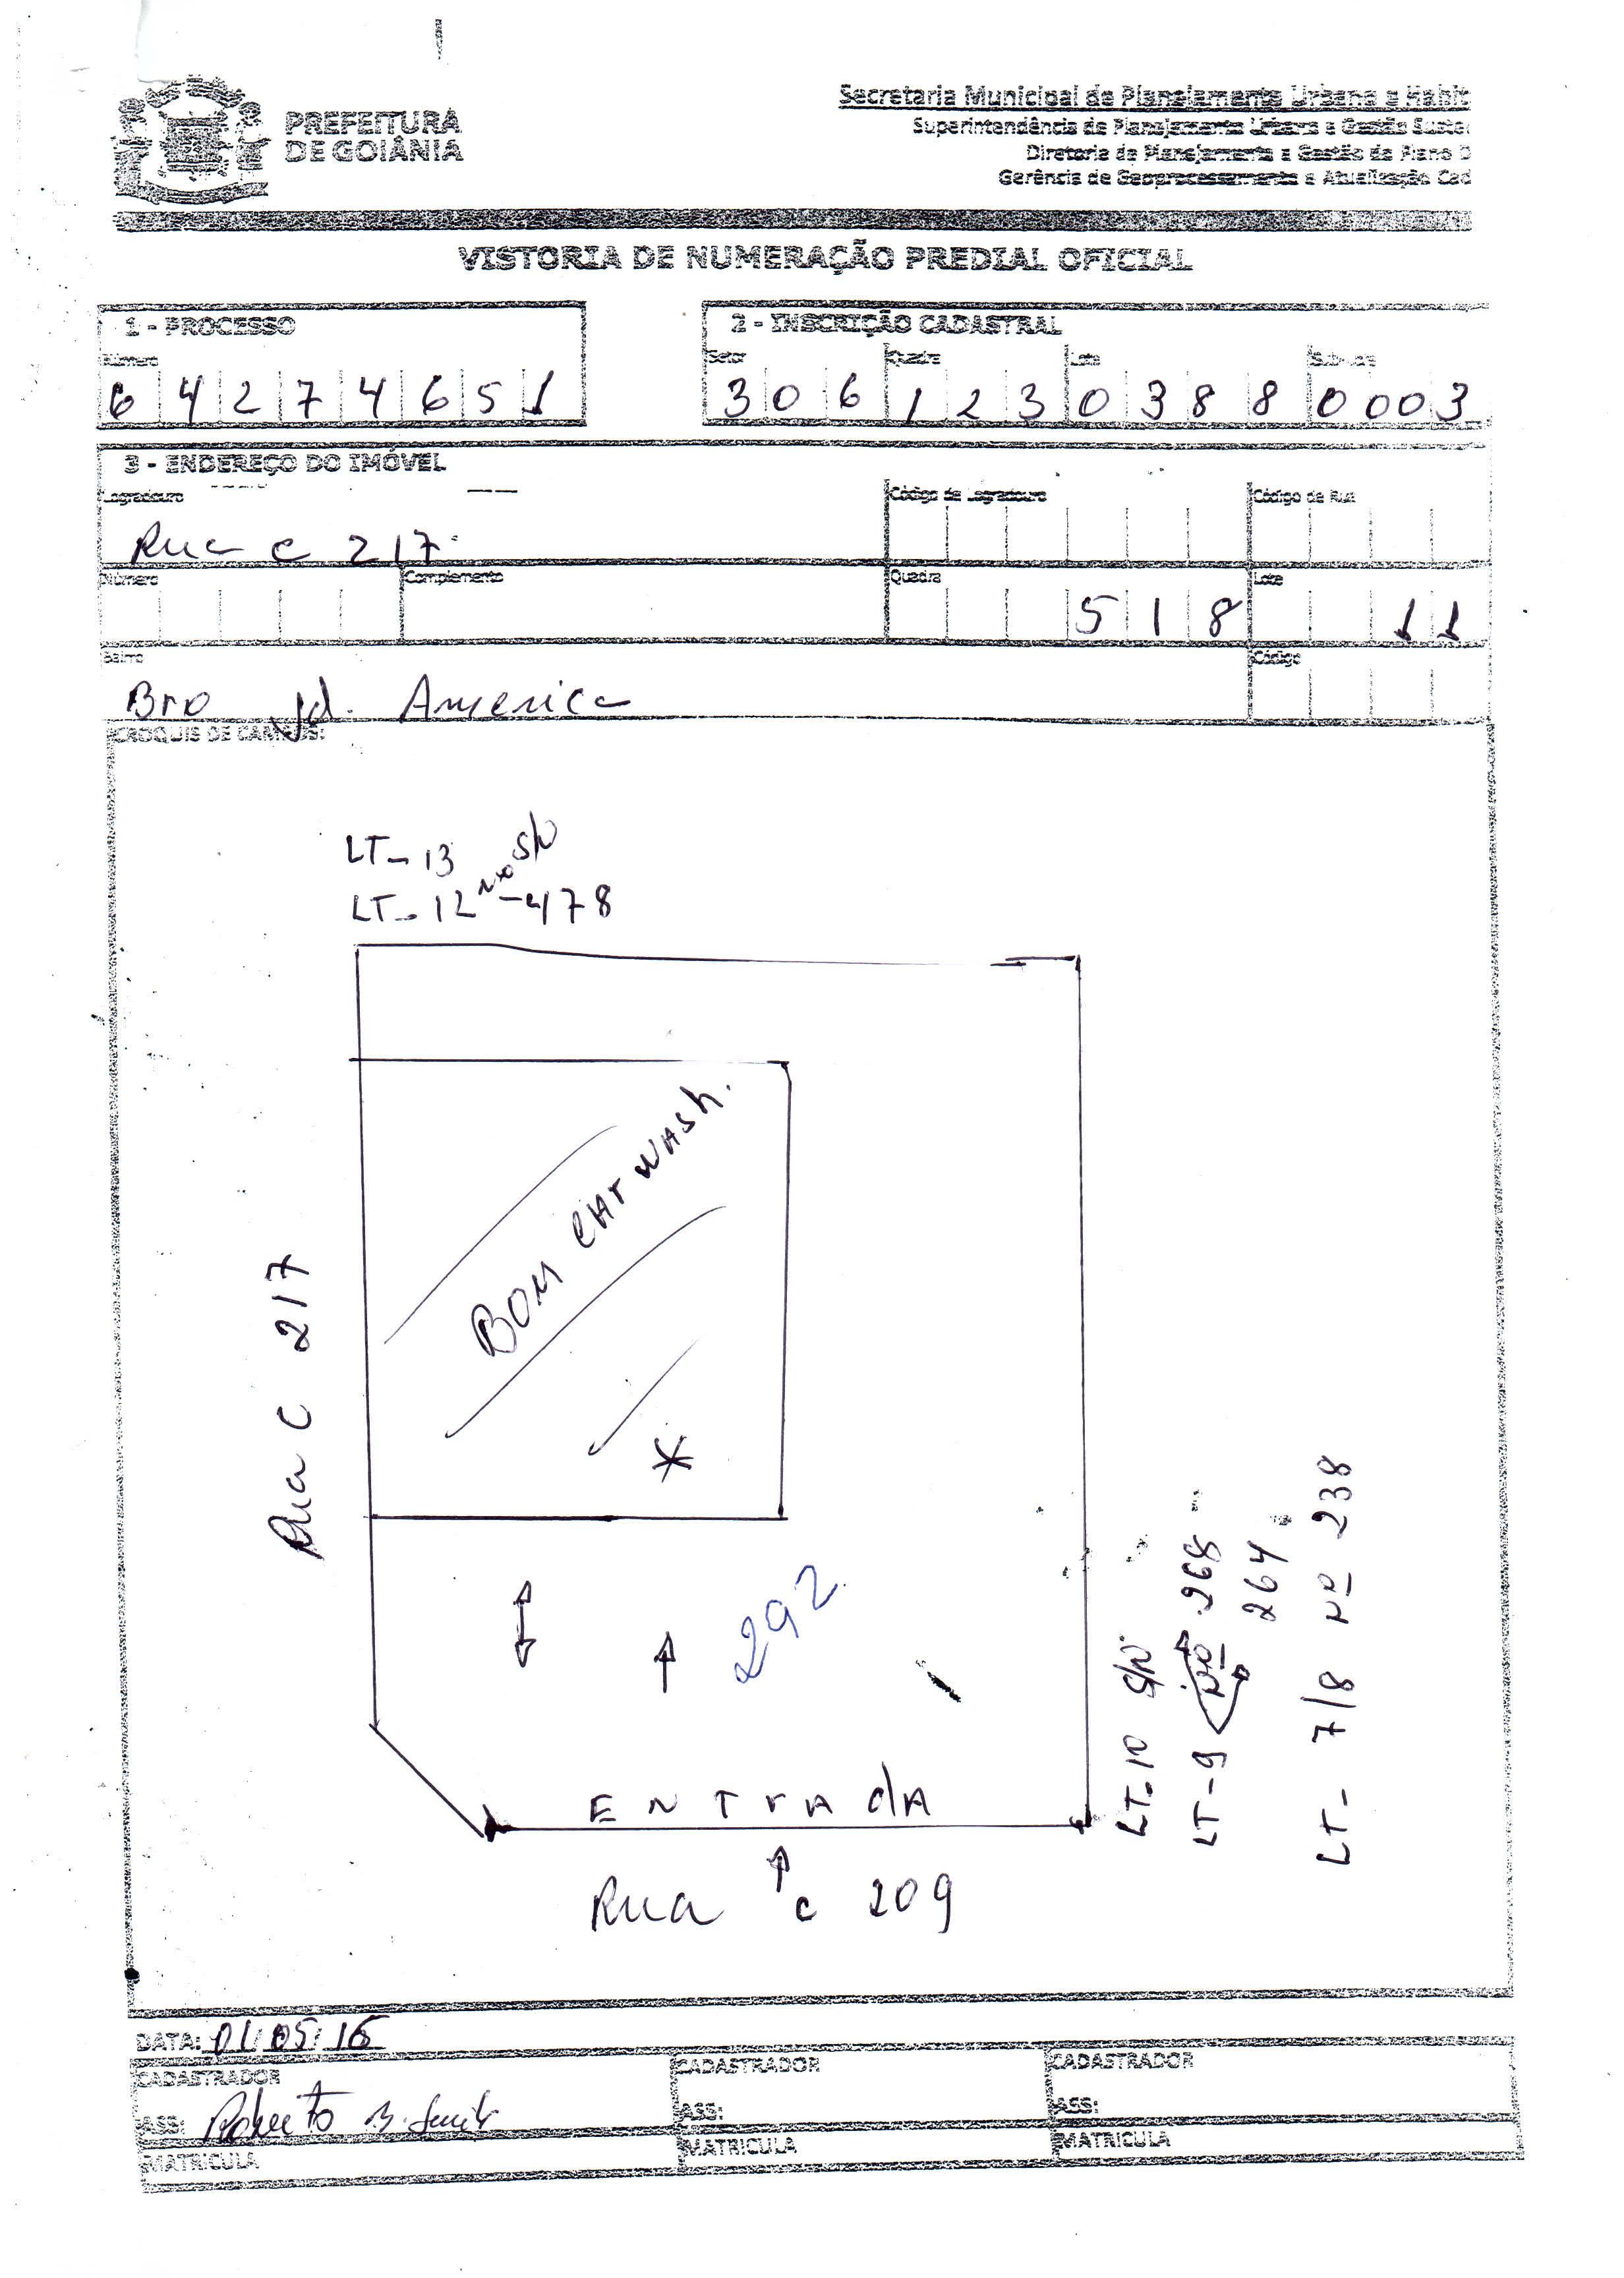 PREFEITURA
DE GOIÂNIA
Secretaria Municipal de Planejamento Urbano e Habit
Superintendência de Planejamento Urbano e Gestão Suste
Diretoria de Planejamento e Gestão do Plano D
Gerência de Geoprocessamento e Atualização Cad
VISTORIA DE NUMERAÇÃO PREDIAL OFICIAL
1 - PROCESSO
Número
6 4 2 7 4 6 5 1
2 - INSCRIÇÃO CADASTRAL
Setor Quadra Lote Sub-Lote
3 0 6 1 2 3 0 3 8 8 0 0 0 3
3 - ENDEREÇO DO IMÓVEL
Logradouro Código de Logradouro Código de Rua
Rua C 217
Número Complemento Quadra Lote
5 1 8 1 1
Bairro Código
Bro Jd. America
CROQUIS DE CAMPUS:
LT - 13 S/N
LT - 12 nº - 478
BOM CAR WASH.
Rua C 217
292
ENTRADA
Rua C 209
LT - 10 S/N
LT - 9 Nº 268
264
LT - 7/8 Nº 238
DATA: 01/05/16
CADASTRADOR CADASTRADOR CADASTRADOR
ASS: Roberto B. ASS: ASS:
MATRICULA MATRICULA MATRICULA